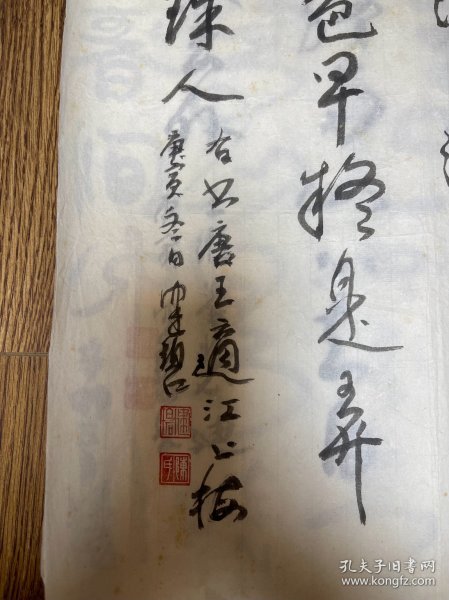 色早疑是弄
珠人
右书唐王適江上梅
庚寅冬日
孔夫子旧书网
www.kongfz.com